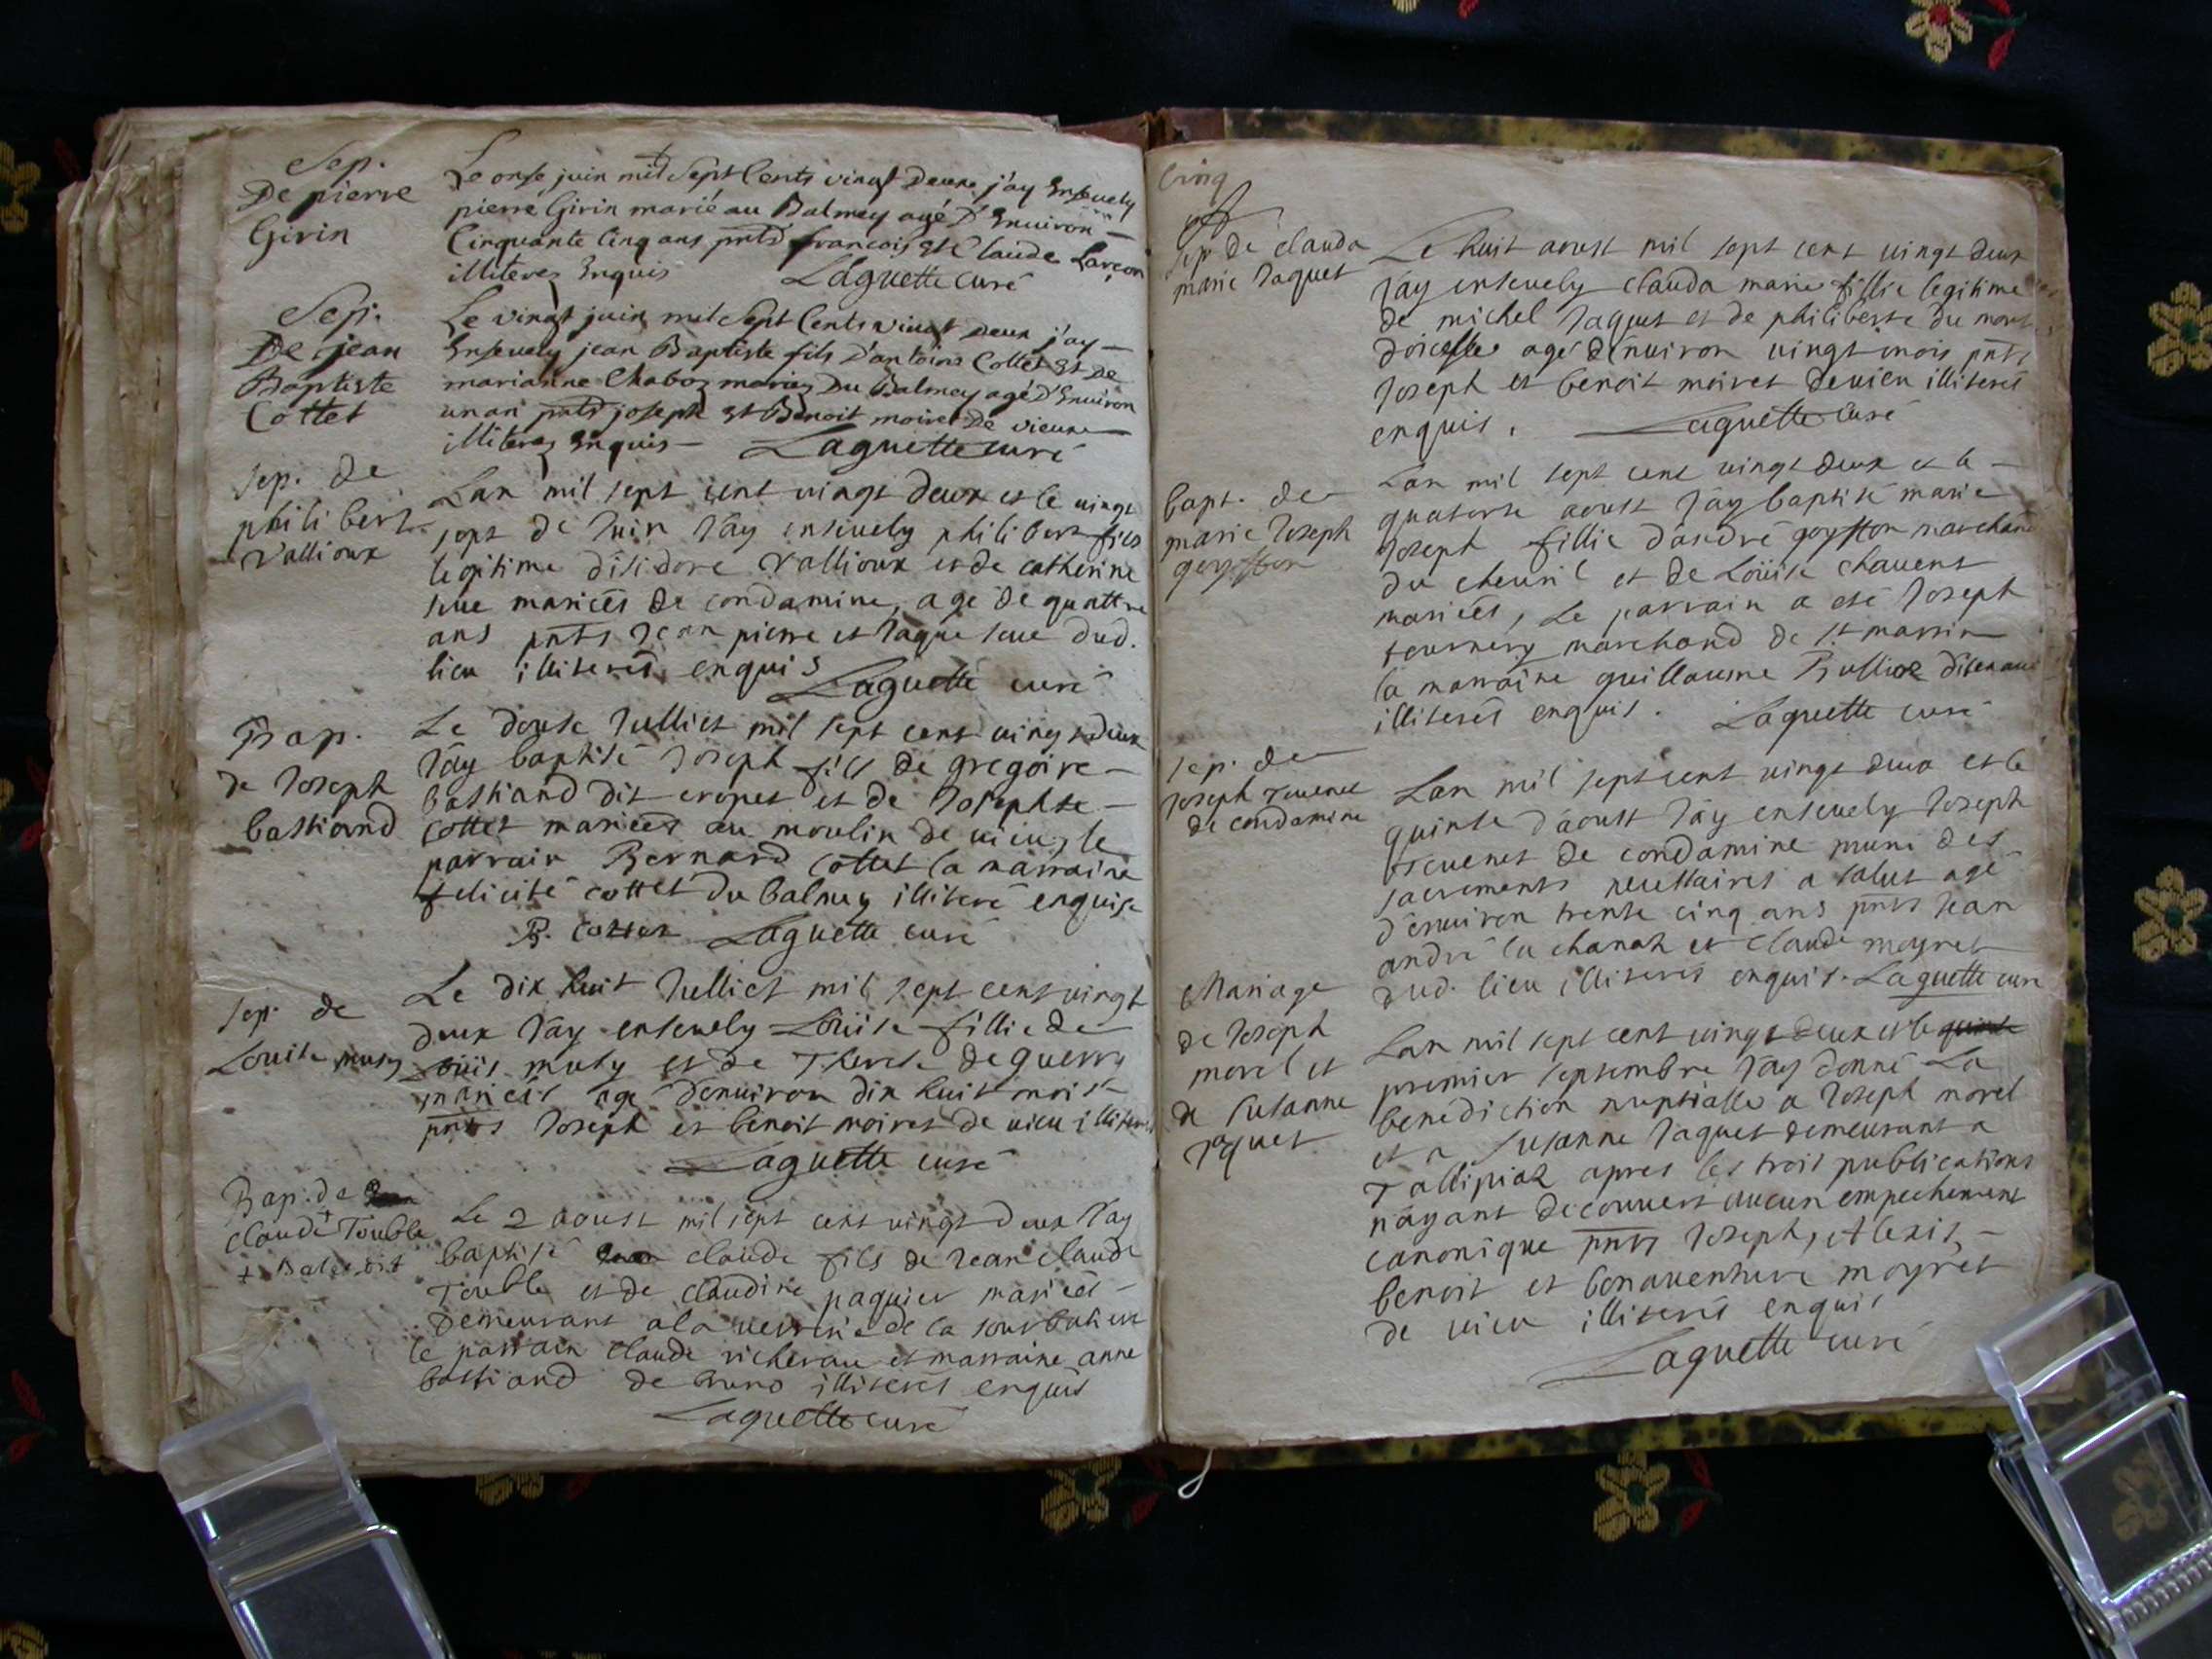 Sep.
De pierre
Girin
Le onse juin mil sept Cents vingt deux j'ay Ensevely
pierre Girin marié au Balmey agé d'Environ
Cinquante Cinq ans pnts francois et Claude
illiterez Enquis Laguette curé
Sep.
De jean
Baptiste
Cottet
Le vingt juin mil sept Cents vingt deux j'ay
Ensevely jean Baptiste fils d'antoine Collet et De
marianne Chaboz mariez Du Balmey agé d'Environ
un an pnts joseph et Benoit moiret De
illiterez Enquis Laguette curé
sep. de
philibert
Vallioux
Lan mil sept cent vingt deux et le vingt
sept de Juin Jay ensevely philibert fils
legitime disidore Vallioux et de catherine
seve mariéés de condamine, age de quattre
ans pnts Jean pierre et Jaque seve dud.
lieu illiterés enquis
Laguette curé
Bap.
de Joseph
bastiand
Le douse Julliet mil sept cent vingt deux
Jay baptisé Joseph fils de gregoire
bastiand dit et de Josephte
cottet mariéés au moulin de vieu, le
parrain Bernard Cottet la marraine
felicité cottet du balmey illiteré enquise
B. Cottet Laguette curé
sep. de
Louise musy
Le dix huit Julliet mil sept cent vingt
deux Jay ensevely Loüise fillie de
Loüis musy et de Therese deguerry
mariéés age denviron dix huit mois
pnts Joseph et benoit moiret de vieu illiterés
Laguette curé
Bap. de
claude Touble
Le 2 aoust mil sept cent vingt deux Jay
baptisé claude fils de Jean claude
Touble et de claudine paquier mariéés
demeurant a la verrerie de la
le parrain claude et marraine anne
bastiand de illiterés enquis
Laguette curé
Cinq
sep. de clauda
marie Jaquet
Le huit aoust mil sept cent vingt deux
Jay ensevely clauda marie fillie legitime
de michel Jaquet et de philiberte du mont
agé denviron vingt mois pnts
Joseph et benoit moiret de vieu illiterés
enquis. Laguette curé
bapt. de
marie Joseph
goyffon
Lan mil sept cent vingt deux et le
quatorse aoust Jay baptisé marie
Joseph fillie d'andré goyffon marchand
du chevril et de Loüise chavent
mariéés, Le parrain a esté Joseph
tournery marchand de st martin
la marraine guillaume
illiterés enquis. Laguette curé
sep. de
Joseph Tevenet
de condamine
Lan mil sept cent vingt deux et le
quinse d'aoust Jay ensevely Joseph
Tevenet de condamine muni des
sacrements necessaires a salut age
d'environ trente cinq ans pnts Jean
andré la chanaz et claude moyret
dud. lieu illiterés enquis. Laguette curé
Mariage
de Joseph
morel et
de Susanne
Jaquet
Lan mil sept cent vingt deux et le quinse
premier septembre Jay donné La
benédiction nuptialle a Joseph morel
et a Susanne Jaquet demeurant a
Tallipiaz apres les trois publications
n'ayant decouvert aucun empechement
canonique pnts Joseph, Alexis,
benoit et bonaventure moyret
de vieu illiterés enquis
Laguette curé